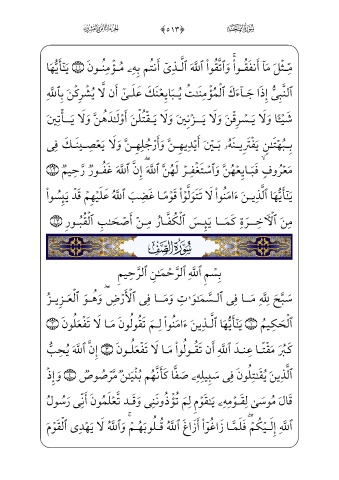 سُورَةُ المُمْتَحنَة ﴿٥١٣﴾ الجُزءُ الثَّامِن والعِشرُون
مِّثْلَ مَآ أَنفَقُوا۟ ۚ وَٱتَّقُوا۟ ٱللَّهَ ٱلَّذِىٓ أَنتُم بِهِۦ مُؤْمِنُونَ ۝١١ يَـٰٓأَيُّهَا
ٱلنَّبِىُّ إِذَا جَآءَكَ ٱلْمُؤْمِنَـٰتُ يُبَايِعْنَكَ عَلَىٰٓ أَن لَّا يُشْرِكْنَ بِٱللَّهِ
شَيْـًٔا وَلَا يَسْرِقْنَ وَلَا يَزْنِينَ وَلَا يَقْتُلْنَ أَوْلَـٰدَهُنَّ وَلَا يَأْتِينَ
بِبُهْتَـٰنٍ يَفْتَرِينَهُۥ بَيْنَ أَيْدِيهِنَّ وَأَرْجُلِهِنَّ وَلَا يَعْصِينَكَ فِى
مَعْرُوفٍ ۙ فَبَايِعْهُنَّ وَٱسْتَغْفِرْ لَهُنَّ ٱللَّهَ ۖ إِنَّ ٱللَّهَ غَفُورٌ رَّحِيمٌ ۝١٢
يَـٰٓأَيُّهَا ٱلَّذِينَ ءَامَنُوا۟ لَا تَتَوَلَّوْا۟ قَوْمًا غَضِبَ ٱللَّهُ عَلَيْهِمْ قَدْ يَئِسُوا۟
مِنَ ٱلْـَٔاخِرَةِ كَمَا يَئِسَ ٱلْكُفَّارُ مِنْ أَصْحَـٰبِ ٱلْقُبُورِ ۝١٣
سُورَةُ الصَّفِّ
بِسْمِ ٱللَّهِ ٱلرَّحْمَـٰنِ ٱلرَّحِيمِ
سَبَّحَ لِلَّهِ مَا فِى ٱلسَّمَـٰوَٰتِ وَمَا فِى ٱلْأَرْضِ ۖ وَهُوَ ٱلْعَزِيزُ
ٱلْحَكِيمُ ۝١ يَـٰٓأَيُّهَا ٱلَّذِينَ ءَامَنُوا۟ لِمَ تَقُولُونَ مَا لَا تَفْعَلُونَ ۝٢
كَبُرَ مَقْتًا عِندَ ٱللَّهِ أَن تَقُولُوا۟ مَا لَا تَفْعَلُونَ ۝٣ إِنَّ ٱللَّهَ يُحِبُّ
ٱلَّذِينَ يُقَـٰتِلُونَ فِى سَبِيلِهِۦ صَفًّا كَأَنَّهُم بُنْيَـٰنٌ مَّرْصُوصٌ ۝٤ وَإِذْ
قَالَ مُوسَىٰ لِقَوْمِهِۦ يَـٰقَوْمِ لِمَ تُؤْذُونَنِى وَقَد تَّعْلَمُونَ أَنِّى رَسُولُ
ٱللَّهِ إِلَيْكُمْ ۖ فَلَمَّا زَاغُوٓا۟ أَزَاغَ ٱللَّهُ قُلُوبَهُمْ ۚ وَٱللَّهُ لَا يَهْدِى ٱلْقَوْمَ